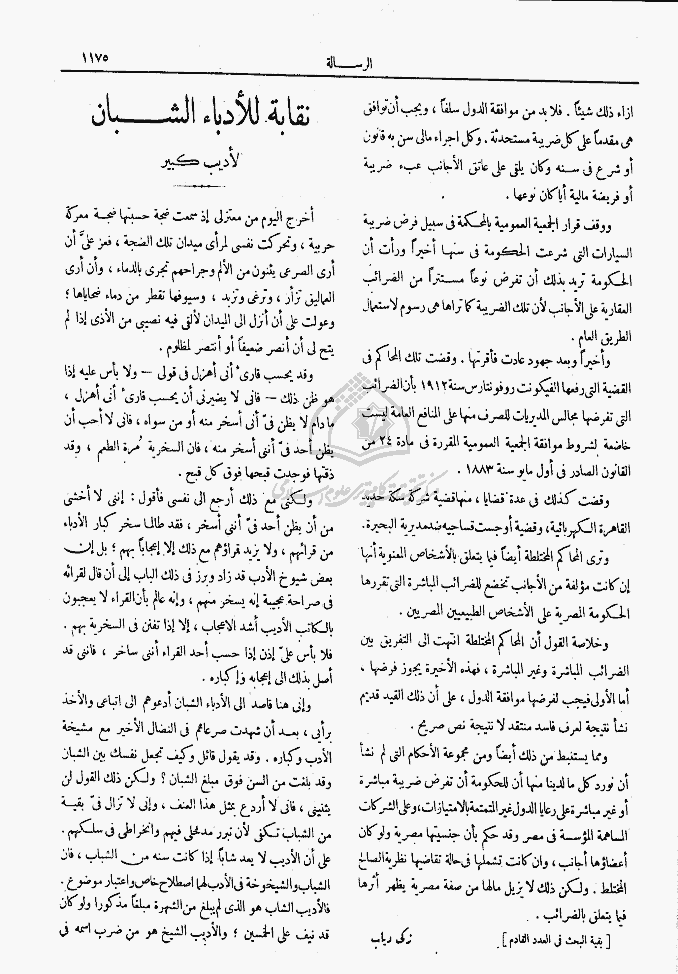 الرسالة
١١٧٥
ازاء ذلك شيئاً . فلا بد من موافقة الدول سلفاً ، ويجب أن توافق
هى مقدماً على كل ضريبة مستحدثة . وكل اجراء مالى سن به قانون
أو شرع فى سنه وكان يلقى على عاتق الأجانب عبء ضريبة
أو فريضة مالية أياً كان نوعها .
ووقف قرار الجمعية العمومية بالمحكمة فى سبيل فرض ضريبة
السيارات التى شرعت الحكومة فى سنها أخيراً ورأت أن
الحكومة تريد بذلك أن تفرض نوعاً مستتراً من الضرائب
العقارية على الأجانب لأن تلك الضريبة كما تراها هى رسوم لاستعمال
الطريق العام .
وأخيراً وبعد جهود عادت فأقرتها . وقضت تلك المحاكم فى
القضية التى رفعها الفيكونت روفونتارس سنة ١٩١٢ بأن الضرائب
التى تفرضها مجالس المديريات للصرف منها على المنافع العامة ليست
خاضعة لشروط موافقة الجمعية العمومية المقررة فى مادة ٢٤ من
القانون الصادر فى أول مايو سنة ١٨٨٣ .
وقضت كذلك فى عدة قضايا ، منها قضية شركة سكة حديد
القاهرة الكهربائية ، وقضية أوجست قساجيه ضد مديرية البحيرة .
وترى المحاكم المختلطة أيضاً فيما يتعلق بالأشخاص المعنوية أنها
إن كانت مؤلفة من الأجانب تخضع للضرائب المباشرة التى تقررها
الحكومة المصرية على الأشخاص الطبيعيين المصريين .
وخلاصة القول أن المحاكم المختلطة انتهت الى التفريق بين
الضرائب المباشرة وغير المباشرة ، فهذه الأخيرة يجوز فرضها ،
أما الأولى فيجب لفرضها موافقة الدول ، على أن ذلك القيد قديم
نشأ نتيجة لعرف فاسد منتقد لا نتيجة نص صريح .
ومما يستنبط من ذلك أيضاً ومن مجموعة الأحكام التى لم نشأ
أن نورد كل ما لدينا منها أن للحكومة أن تفرض ضريبة مباشرة
أو غير مباشرة على رعايا الدول غير المتمتعة بالامتيازات ، وعلى الشركات
المساهمة المؤسسة فى مصر وقد حكم بأن جنسيتها مصرية ولو كان
أعضاؤها أجانب ، وان كانت تشملها فى حالة تقاضيها نظرية الصالح
المختلط . ولكن ذلك لا يزيل مالها من صفة مصرية يظهر أثرها
فيما يتعلق بالضرائب .
[ بقية البحث فى العدد القادم ] زكى رياب
نقابة للأدباء الشبان
لأديب كبير
أخرج اليوم من معتزلى إذ سمعت ضجة حسبتها ضجة معركة
حربية ، وتحركت نفسى لمرأى ميدان تلك الضجة ، فعز علىَّ أن
أرى الصرعى يئنون من الألم وجراحهم تجرى بالدماء ، وأن أرى
العماليق تزأر ، وترغى وتزبد ، وسيوفها تقطر من دماء ضحاياها ؛
وعولت على أن أنزل الى الميدان لألقى فيه نصيبى من الأذى إذا لم
يتح لى أن أنصر ضعيفاً أو أنتصر لمظلوم .
وقد يحسب قارئ أنى أهزل فى قولى — ولا بأس عليه إذا
هو ظن ذلك — فانى لا يضيرنى أن يحسب قارئ أنى أهزل ،
ما دام لا يظن فىّ أنى أسخر منه أو من سواه ، فانى لا أحب أن
يظن أحد فىّ أننى أسخر منه ، فان السخرية مُرة الطعم ، وقد
ذقتها فوجدت قبحها فوق كل قبح .
ولكنى مع ذلك أرجع الى نفسى فأقول : إننى لا أخشى
من أن يظن أحد فىّ أننى أسخر ، فقد طالما سخر كبار الأدباء
من قرائهم ، ولا يزيد قراؤهم مع ذلك إلا إعجاباً بهم ؛ بل إن
بعض شيوخ الأدب قد زاد وبرز فى ذلك الباب إلى أن قال لقرائه
فى صراحة عجيبة إنه يسخر منهم ، وإنه عالم بأن القراء لا يعجبون
بالكاتب الأديب أشد الاعجاب ، إلا إذا تفنن فى السخرية بهم .
فلا بأس علىّ إذن إذا حسب أحد القراء أننى ساخر ، فاننى قد
أصل بذلك الى إعجابه وإكباره .
وإنى هنا قاصد الى الأدباء الشبان أدعوهم الى اتباعى والأخذ
برأيى ، بعد أن شهدت صرعاهم فى النضال الأخير مع مشيخة
الأدب وكباره . وقد يقول قائل وكيف تجعل نفسك بين الشبان
وقد بلغت من السن فوق مبلغ الشبان ؟ ولكن ذلك القول لن
يثنينى ، فانى لا أردع بمثل هذا العنف ، وإنى لا تزال فىّ بقية
من الشباب تكفى لأن تبرر مدخلى فيهم وانخراطى فى سلكهم .
على أن الأديب لا يعد شاباً إذا كانت سنه من الشباب ، فان
الشباب والشيخوخة فى الأدب لهما اصطلاح خاص واعتبار موضوع .
فالأديب الشاب هو الذى لم يبلغ من الشهرة مبلغاً مذكورا ولو كان
قد نيف على الخمسين ؛ والأديب الشيخ هو من ضرب اسمه فى